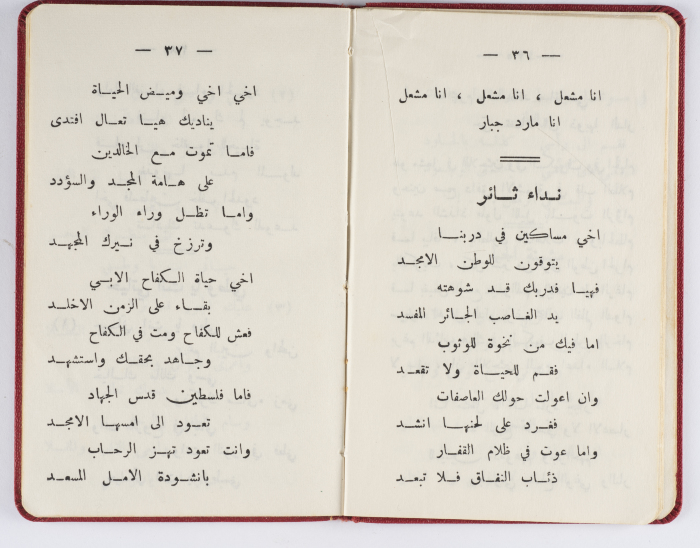 — ٣٦ —
انا مشعل ، انا مشعل ، انا مشعل
انا مارد جبار
نداء ثائر
اخي مساكين في دربنا
يتوقون للوطن الامجد
فهيا فدربك قد شوهته
يد الغاصب الجائر المفسد
اما فيك من نخوة للوثوب
فقم للحياة ولا تقعد
وان اعولت حولك العاصفات
فغرد على لحنها انشد
واما عوت في ظلام القفار
ذئاب النفاق فلا تبعد
— ٣٧ —
اخي اخي وميض الحياة
يناديك هيا تعال افتدى
فاما تموت مع الخالدين
على هامة المجد والسؤدد
واما تظل وراء الوراء
وترزخ في نيرك المجهد
اخي حياة الكفاح الابي
بقاء على الزمن الاخلد
فعش للكفاح ومت في الكفاح
وجاهد بحقك واستشهد
فاما فلسطين قدس الجهاد
تعود الى امسها الامجد
وانت تعود تهز الرحاب
بانشودة الامل المسعد